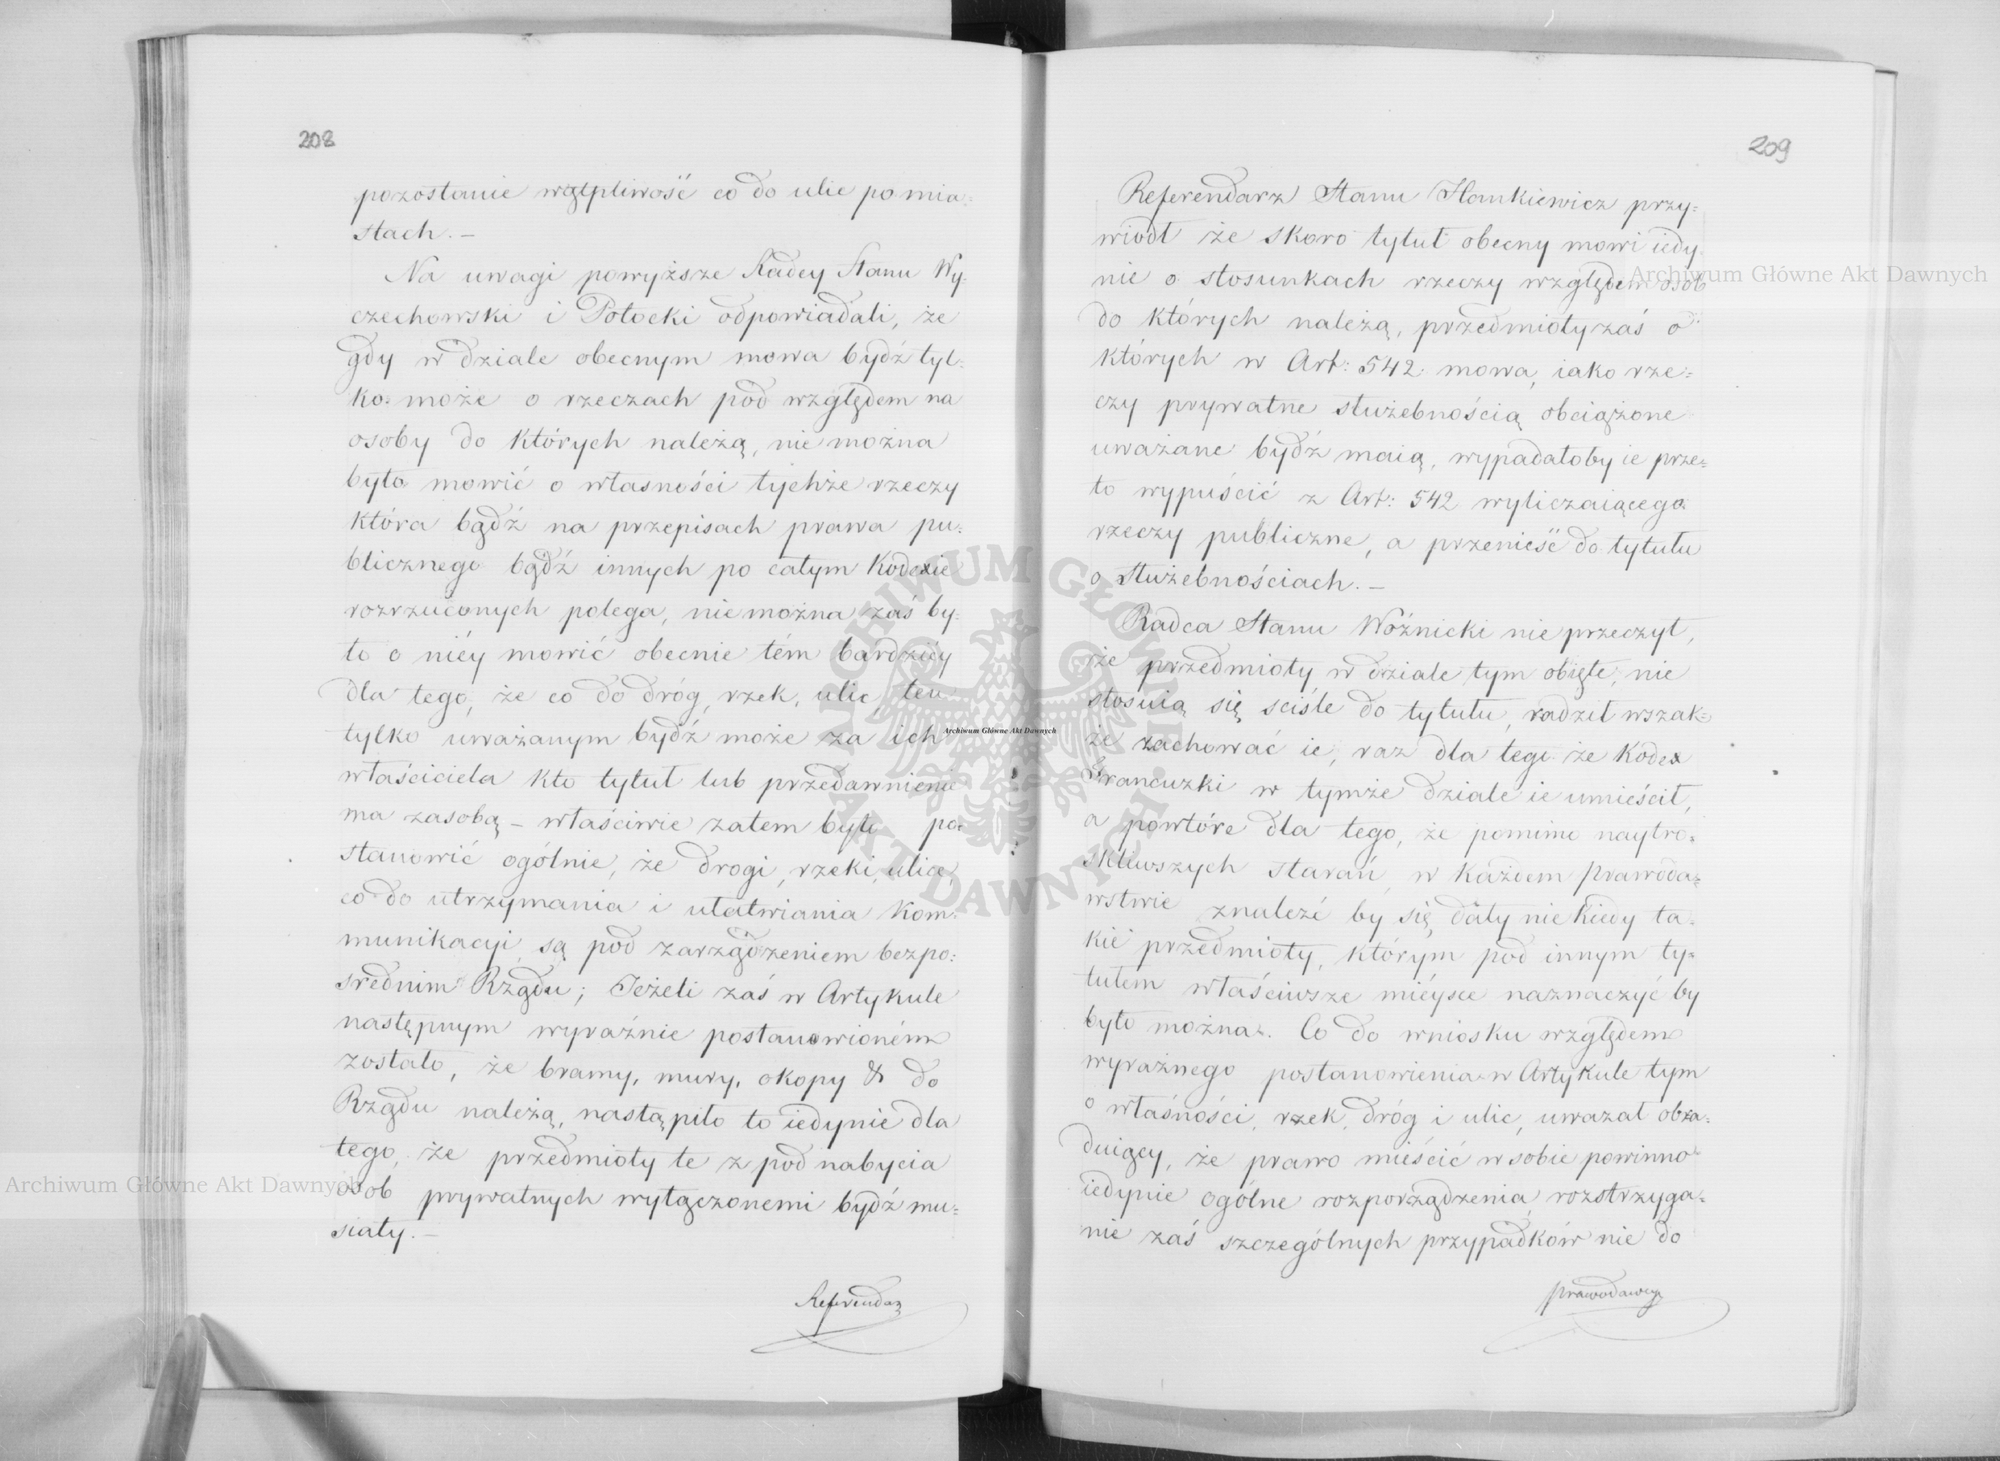 208
pozostanie wątpliwość co do ulic po mia=
stach. —
Na uwagi powyższe Radcy Stanu Wy=
czechowski i Potocki odpowiadali, że
gdy w dziale obecnym mowa bydź tyl=
ko może o rzeczach pod względem na
osoby do których należą, nie można
było mowić o własności tychże rzeczy
która bądź na przepisach prawa pu=
blicznego bądź innych po całym Kodexie
rozrzuconych polega, nie można zaś by=
ło o niéy mowić obecnie tém bardziéy
dla tego, że co do dróg, rzek, ulic, ten
tylko uważanym bydź może za ich
właściciela kto tytuł lub przedawnienie
ma za sobą — właściwie zatem było po=
stanowić ogólnie, że drogi, rzeki, ulice,
co do utrzymania i ułatwiania kom=
munikacyi są pod zarządzeniem bezpo=
srednim Rządu; Jeżeli zaś w Artykule
następnym wyraźnie postanowioném
zostało, że bramy, mury, okopy & do
Rządu należą, nastąpiło to iedynie dla
tego, że przedmioty te z pod nabycia
osob prywatnych wyłączonemi bydź mu=
siały. —
Referendarz
209
Referendarz Stanu Hankiewicz przy=
wiodł że skoro tytuł obecny mowi iedy=
nie o stosunkach rzeczy względem osob
do których należą, przedmioty zaś o
których w Art: 542 mowa, iako rze=
czy prywatne służebnością obciążone
uważane bydź maią, wypadałoby ie prze=
to wypuścić z Art: 542 wyliczaiącego
rzeczy publiczne, a przenieść do tytułu
o Służebnościach. —
Radca Stanu Woźnicki nie przeczył,
że przedmioty w dziale tym obięte, nie
stosuią się sciśle do tytułu, radził wszak=
że zachować ie, raz dla tego że Kodex
Francuzki w tymże dziale ie umieścił,
a powtóre dla tego, że pomimo naytro=
skliwszych starań w każdem prawoda=
wstwie znaleźć by się dały niekiedy ta=
kie przedmioty, którym pod innym ty=
tułem właściwsze miéysce naznaczyć by
było można. Co do wniosku względem
wyraźnego postanowienia w Artykule tym
o własności, rzek, dróg i ulic, uważał obra=
duiący, że prawo mieścić w sobie powinno
iedynie ogólne rozporządzenia, rozstrzyga=
nie zaś szczególnych przypadków nie do
prawodawcy
Archiwum Główne Akt Dawnych
Archiwum Główne Akt Dawnych
Archiwum Główne Akt Dawnych
ARCHIWUM GŁÓWNE AKT DAWNYCH